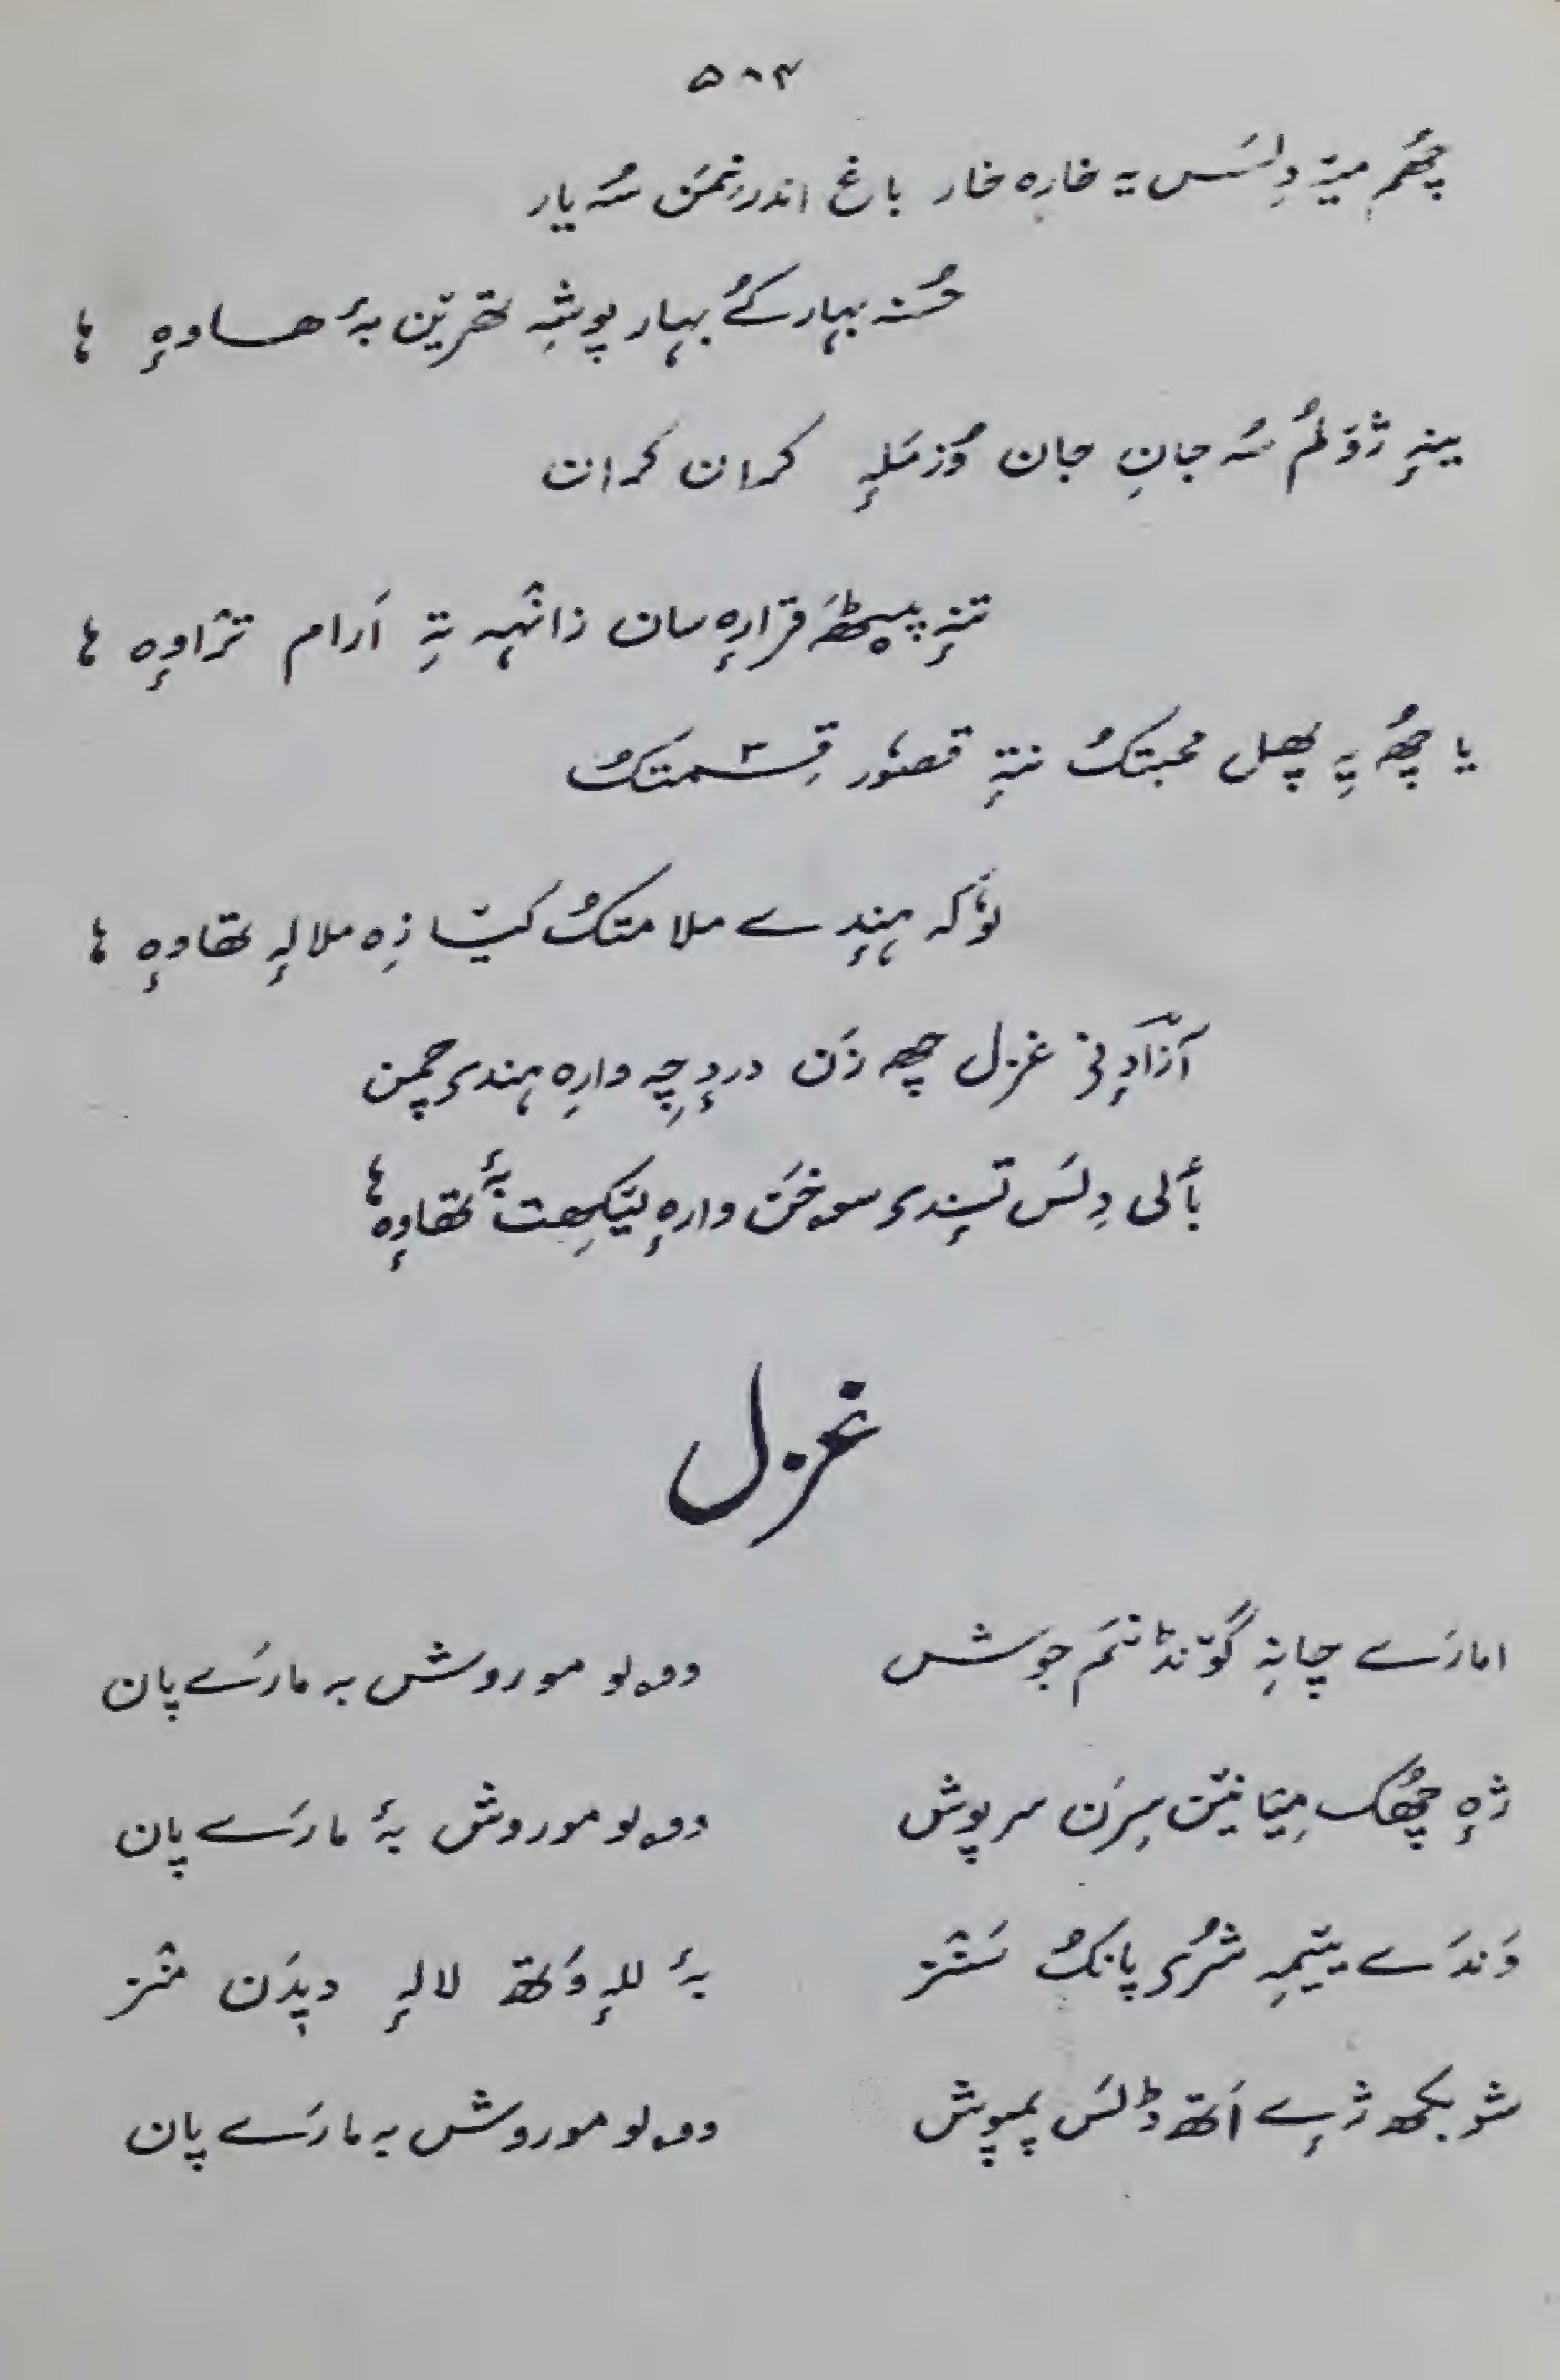 ۵۸۴
چھُم میٚہ دِلَس یہ خارہ خار باغ اندر نِمَن سُہ یار
حُسنہ بہار کے بہار پوشہِ تھریٚن بہٕ ھاوہٕ ہا
ینہٕ ژوٚلُم سُہ جانِ جان وُزمَلہٕ کران کران
تنہٕ پیٹھَ قرارٕہ سان زانٛہہ تہِ آرام ترٛاوٕہ ہا
یا چھُہ یہِ پھل محبتکُ نتہٕ قصوٗر قِسمتکُ
لوٗکہ ہِنٛدے ملامتکُ کیٚا زِہ ملالہٕ تھاوہٕ ہا
آزادٕنی غزل چھہ زَن دردٕچہِ وارِہ ہندی چمن
بٲلی دِلَس تہِنٕدی سوخَن وارہٕ لیٚکھِت بہٕ تھاوٕہ ہا
غزل
امارَے چانہِ گوٚنڈنَم جوش
وولو مو روش بہ مارَے پان
ژہٕ چھُک میٚانیٚن سِرَن سرپوش
وولو مو روش بہٕ مارَے پان
وَندَے ییٚمہِ شُری پانکُ سَنٛز
بہٕ للہٕ وَتھ لالہٕ دیدَن منٛز
شوبکھ ژٕے اَتھ ڈلَس پمپوش
وولو مو روش بہ مارَے پان